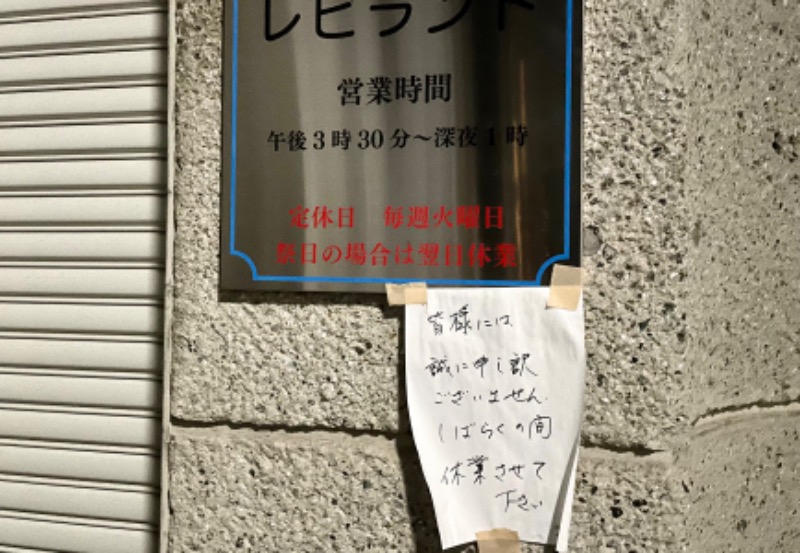 レビランド
営業時間
午後3時30分～深夜1時
定休日 毎週火曜日
祭日の場合は翌日休業
皆様には
誠に申し訳
ございません
しばらくの間
休業させて
下さい